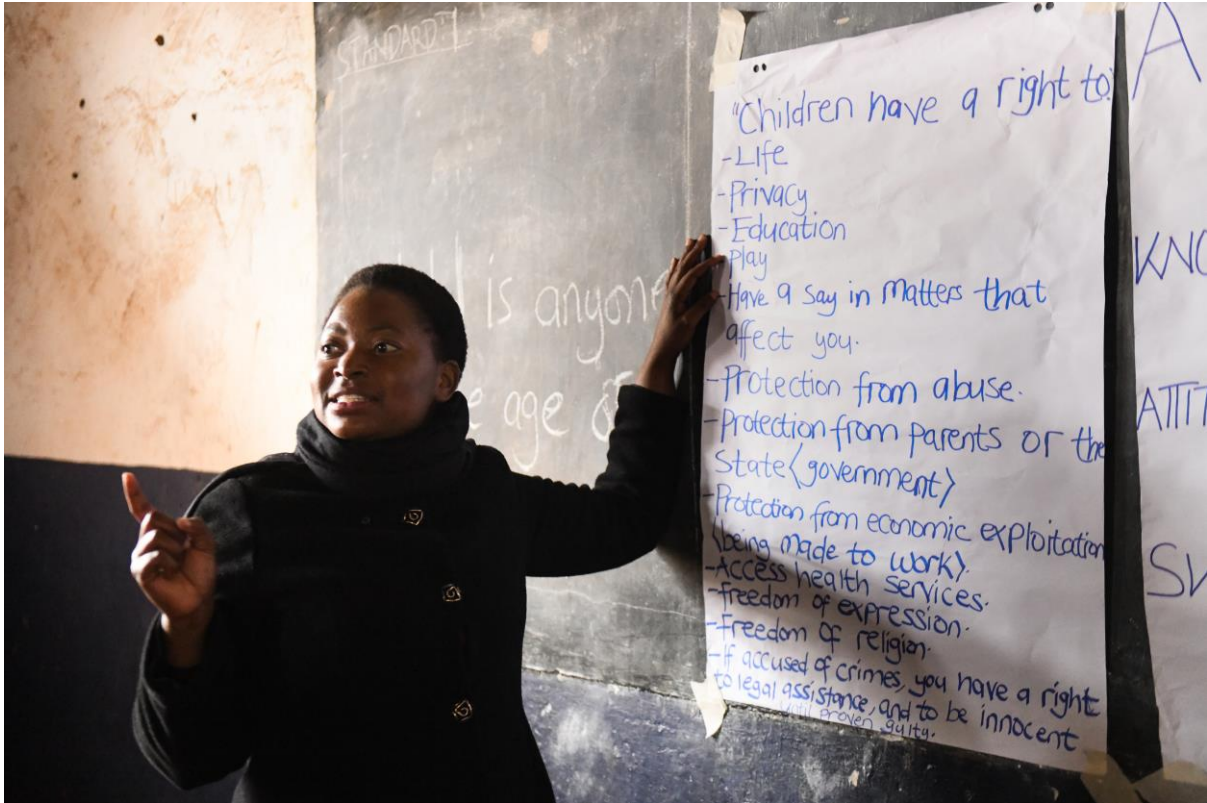 STANDARD 7
is anyone
age of
"Children have a right to:
-Life
-Privacy
-Education
-Play
-Have a say in matters that
affect you.
-Protection from abuse.
-Protection from parents or the
State (government)
-Protection from economic exploitation
(being made to work).
-Access health services.
-freedom of expression.
-Freedom of religion.
-If accused of crimes, you have a right
to legal assistance, and to be innocent
until proven guilty.
A
KNO
ATTIT